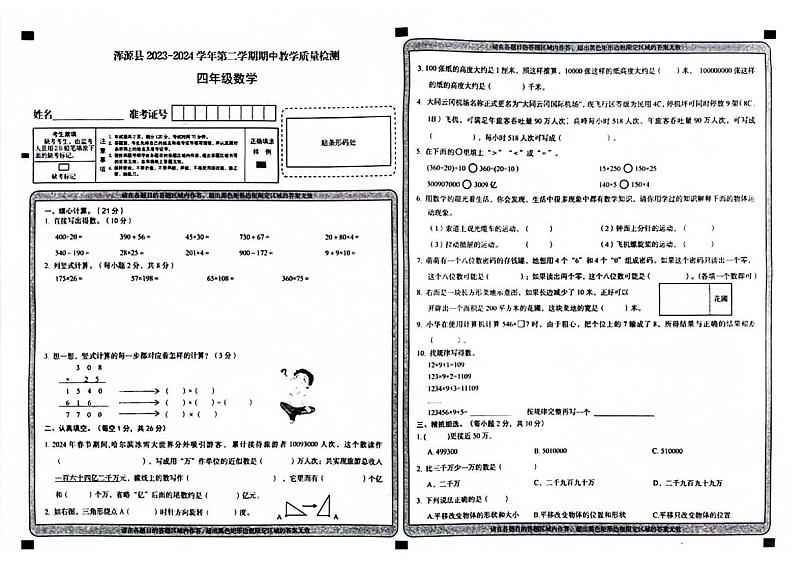 浑源县 2023-2024 学年第二学期期中教学质量检测
四年级数学
姓名
准考证号
考生禁填
缺考考生，由监考
人员用2B铅笔填涂下
面的缺考标记。
缺考标记
注意事项
正确填涂
样 例
贴条形码处
请在各题目的答题区域内作答，超出黑色矩形边框限定区域的答案无效
一、细心计算。（21 分）
1. 直接写出得数。（10 分）
400÷20= 390+56= 45×30= 730+67= 20+80×4=
540-190= 28×25= 201×4= 900-172= 9+9×10=
2. 列竖式计算。（每小题 2 分，共 8 分）
175×26= 57×198= 65×108= 360×75=
3. 想一想，竖式计算的每一步都对应着怎样的计算？（3 分）
3 0 8
× 2 5
1 5 4 0 （ ）×（ ）
6 1 6 （ ）×（ ）=（ ）
7 7 0 0 （ ）×（ ）
二、认真填空。（每空 1 分，共 26 分）
1. 2024 年春节期间,哈尔滨冰雪大世界分外吸引游客，累计接待旅游者 10093000 人次，这个数读作
（ ），写成用“万”作单位的近似数是（ ）万人次；共实现旅游总收入
一百六十四亿二千万元，横线上的数写作（ ），它里面有（ ）个亿
和（ ）个万，省略“亿”后面的尾数约是（ ）亿元。
2. 如右图，三角形绕点 A（ ）时针方向旋转（ ）度。
A A
请在各题目的答题区域内作答，超出黑色矩形边框限定区域的答案无效
请在各题目的答题区域内作答，超出黑色矩形边框限定区域的答案无效
3. 100 张纸的高度大约是 1 厘米，照这样推算，10000 张这样的纸的高度大约是（ ）米， 100000000 张这样
的纸的高度大约是（ ）千米。
4. 大同云冈机场名称正式更名为“大同云冈国际机场”，现飞行区等级为民用 4C，停机坪可同时停放 9 架（8C、
1B）飞机，可满足年旅客吞吐量 90 万人次，高峰每小时 518 人次。年旅客吞吐量 90 万人次，可写成
（ ），每小时 518 人次可写成（ ）。
5. 在下面的○里填上“>”“<”或“=”。
(360÷20)÷10 ○ 360÷(20÷10) 15×250 ○ 150×25
300907000 ○ 3009 亿 140×5 ○ 150×4
6. 用数学的眼光看生活，你会发现，生活中很多现象中都有数学知识，请你用学过的知识解释下面的物体运
动现象。
（1）索道上观光缆车的运动。（ ） （2）钟面上分针的运动。（ ）
（3）拉动抽屉的运动。（ ） （4）飞机螺旋桨的运动。（ ）
7. 萌萌有一个八位数密码的存钱罐，她想用 4 个“6”和 4 个“0”组成密码。如果这个密码只读出一个零，
这个八位数可能是（ ）；如果读出两个零，这个八位数可能是（ ）。（各填一个数即可）
8. 右面是一块长方形菜地示意图，如果长边减少了 10 米，正好可以
开辟出一个面积是 200 平方米的花圃，这块菜地的宽是（ ）米。
花圃
9. 小华在使用计算机计算 546×□7 时，由于粗心，把个位上的 7 输成了 8，所得结果与正确的结果相差
（ ）。
10. 找规律写得数。
12×9+1=109
123×9+2=1109
1234×9+3=11109
……
123456×9+5= 按规律完整再写一个
三、精挑细选。（每小题 2 分，共 10 分）
1.（ ）更接近 50 万。
A. 499300 B. 5010000 C. 510000
2. 比三千万少一万的数是（ ）
A. 二千万 C. 二千九百九十万 D. 二千九百九十九万
3. 下列说法正确的是（ ）
A.平移改变物体的形状和大小 B.平移改变物体的位置和形状 C.平移只改变物体的位置
请在各题目的答题区域内作答，超出黑色矩形边框限定区域的答案无效